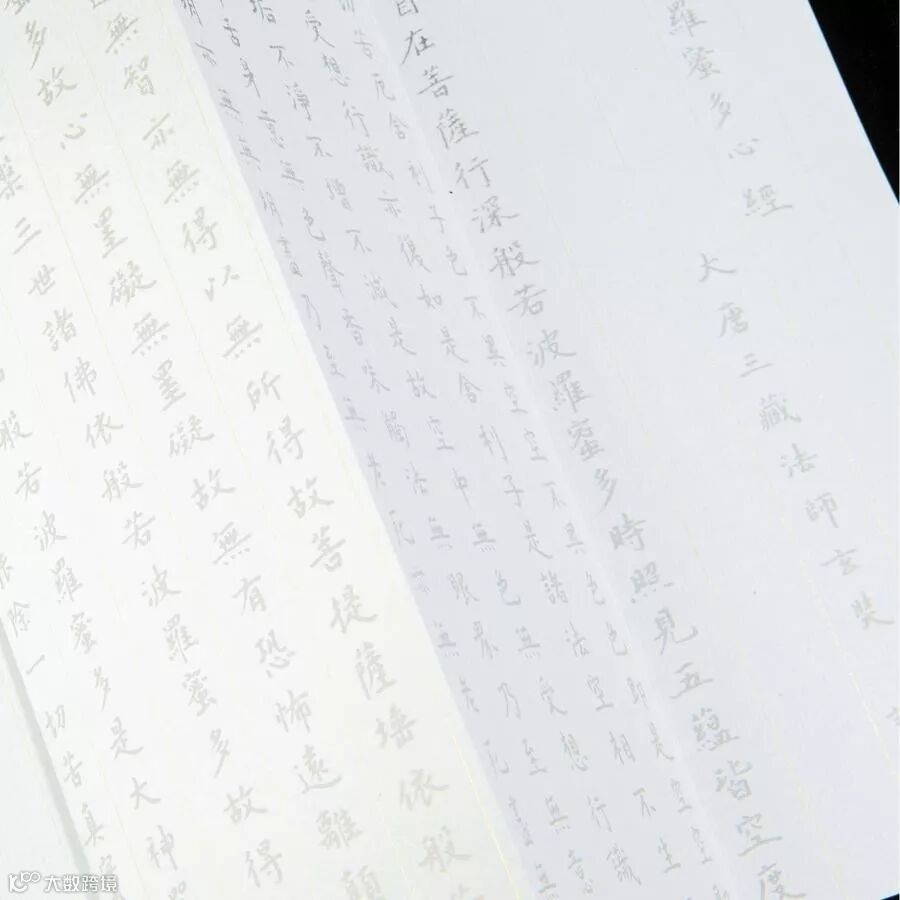 羅蜜多心經
大唐三藏法師玄奘
自在菩薩行深般若波羅蜜多時照見五蘊皆空度
苦厄舍利子色不異空空不異色色即是空空
受想行識亦復如是舍利子是諸法空相不生
垢不淨不增不減是故空中無色無受想行識
舌身意無色聲香味觸法無眼界乃至無意
明亦無無明盡乃至無老死亦無老死盡無
無智亦無得以無所得故菩提薩埵依般
蜜多故心無罣礙無罣礙故無有恐怖遠離顛
槃三世諸佛依般若波羅蜜多故得
般若波羅蜜多是大神
除一切苦真實
大数跨境